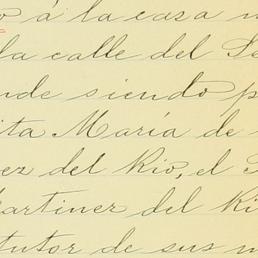 o á la casa n
la calle del Se
nde siendo p
ita María de
ez del Rio, el S
Martinez del Ri
tutor de sus m